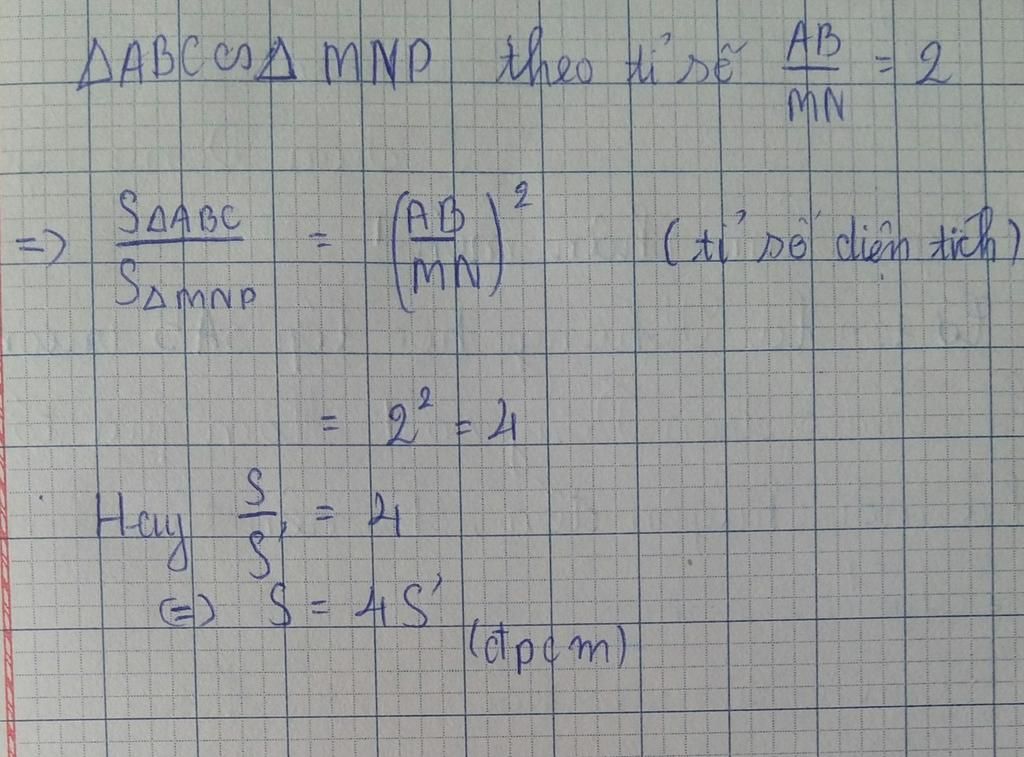 ΔABC ∽ Δ MNP theo tỉ số AB/MN = 2
=> SΔABC/SΔMNP = (AB/MN)² (tỉ số diện tích)
= 2² = 4
Hay S/S' = 4
<=> S = 4S'
(đpcm)